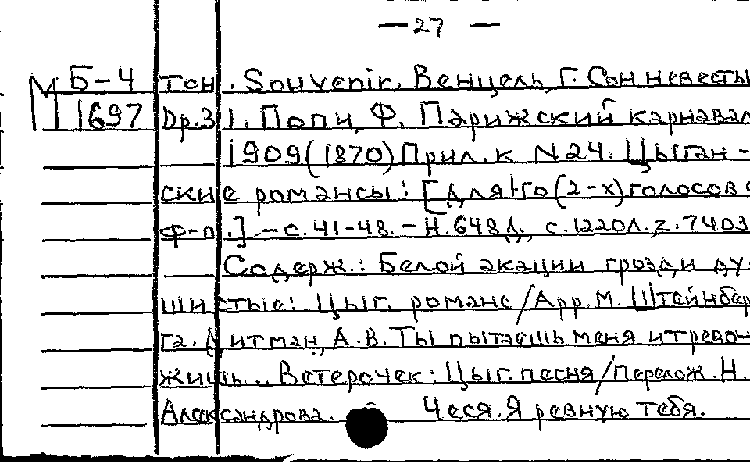 — 27 —
Б-4 тон. Souvenir. Венцель, Г. Сон невесты
М 1697 Др. 3 1. Попи, Ф. Парижский карнавал
1909 (1870) Прил. к N 24. Цыган-
ские романсы: [для 1-го (2-х) голосов с
ф-п.] - с. 41-48. - Н. 648 д, с. 1220 л. z. 7403
Содерж.: Белой акации грозди ду-
шистые: Цыг. романс / Арр. М. Штейнбер
га. Дитман, А. В. Ты пытаешь меня и тревож
жишь.. Ветерочек: Цыг. песня / Перелож. Н.
Александрова. Чеся. Я ревную тебя.